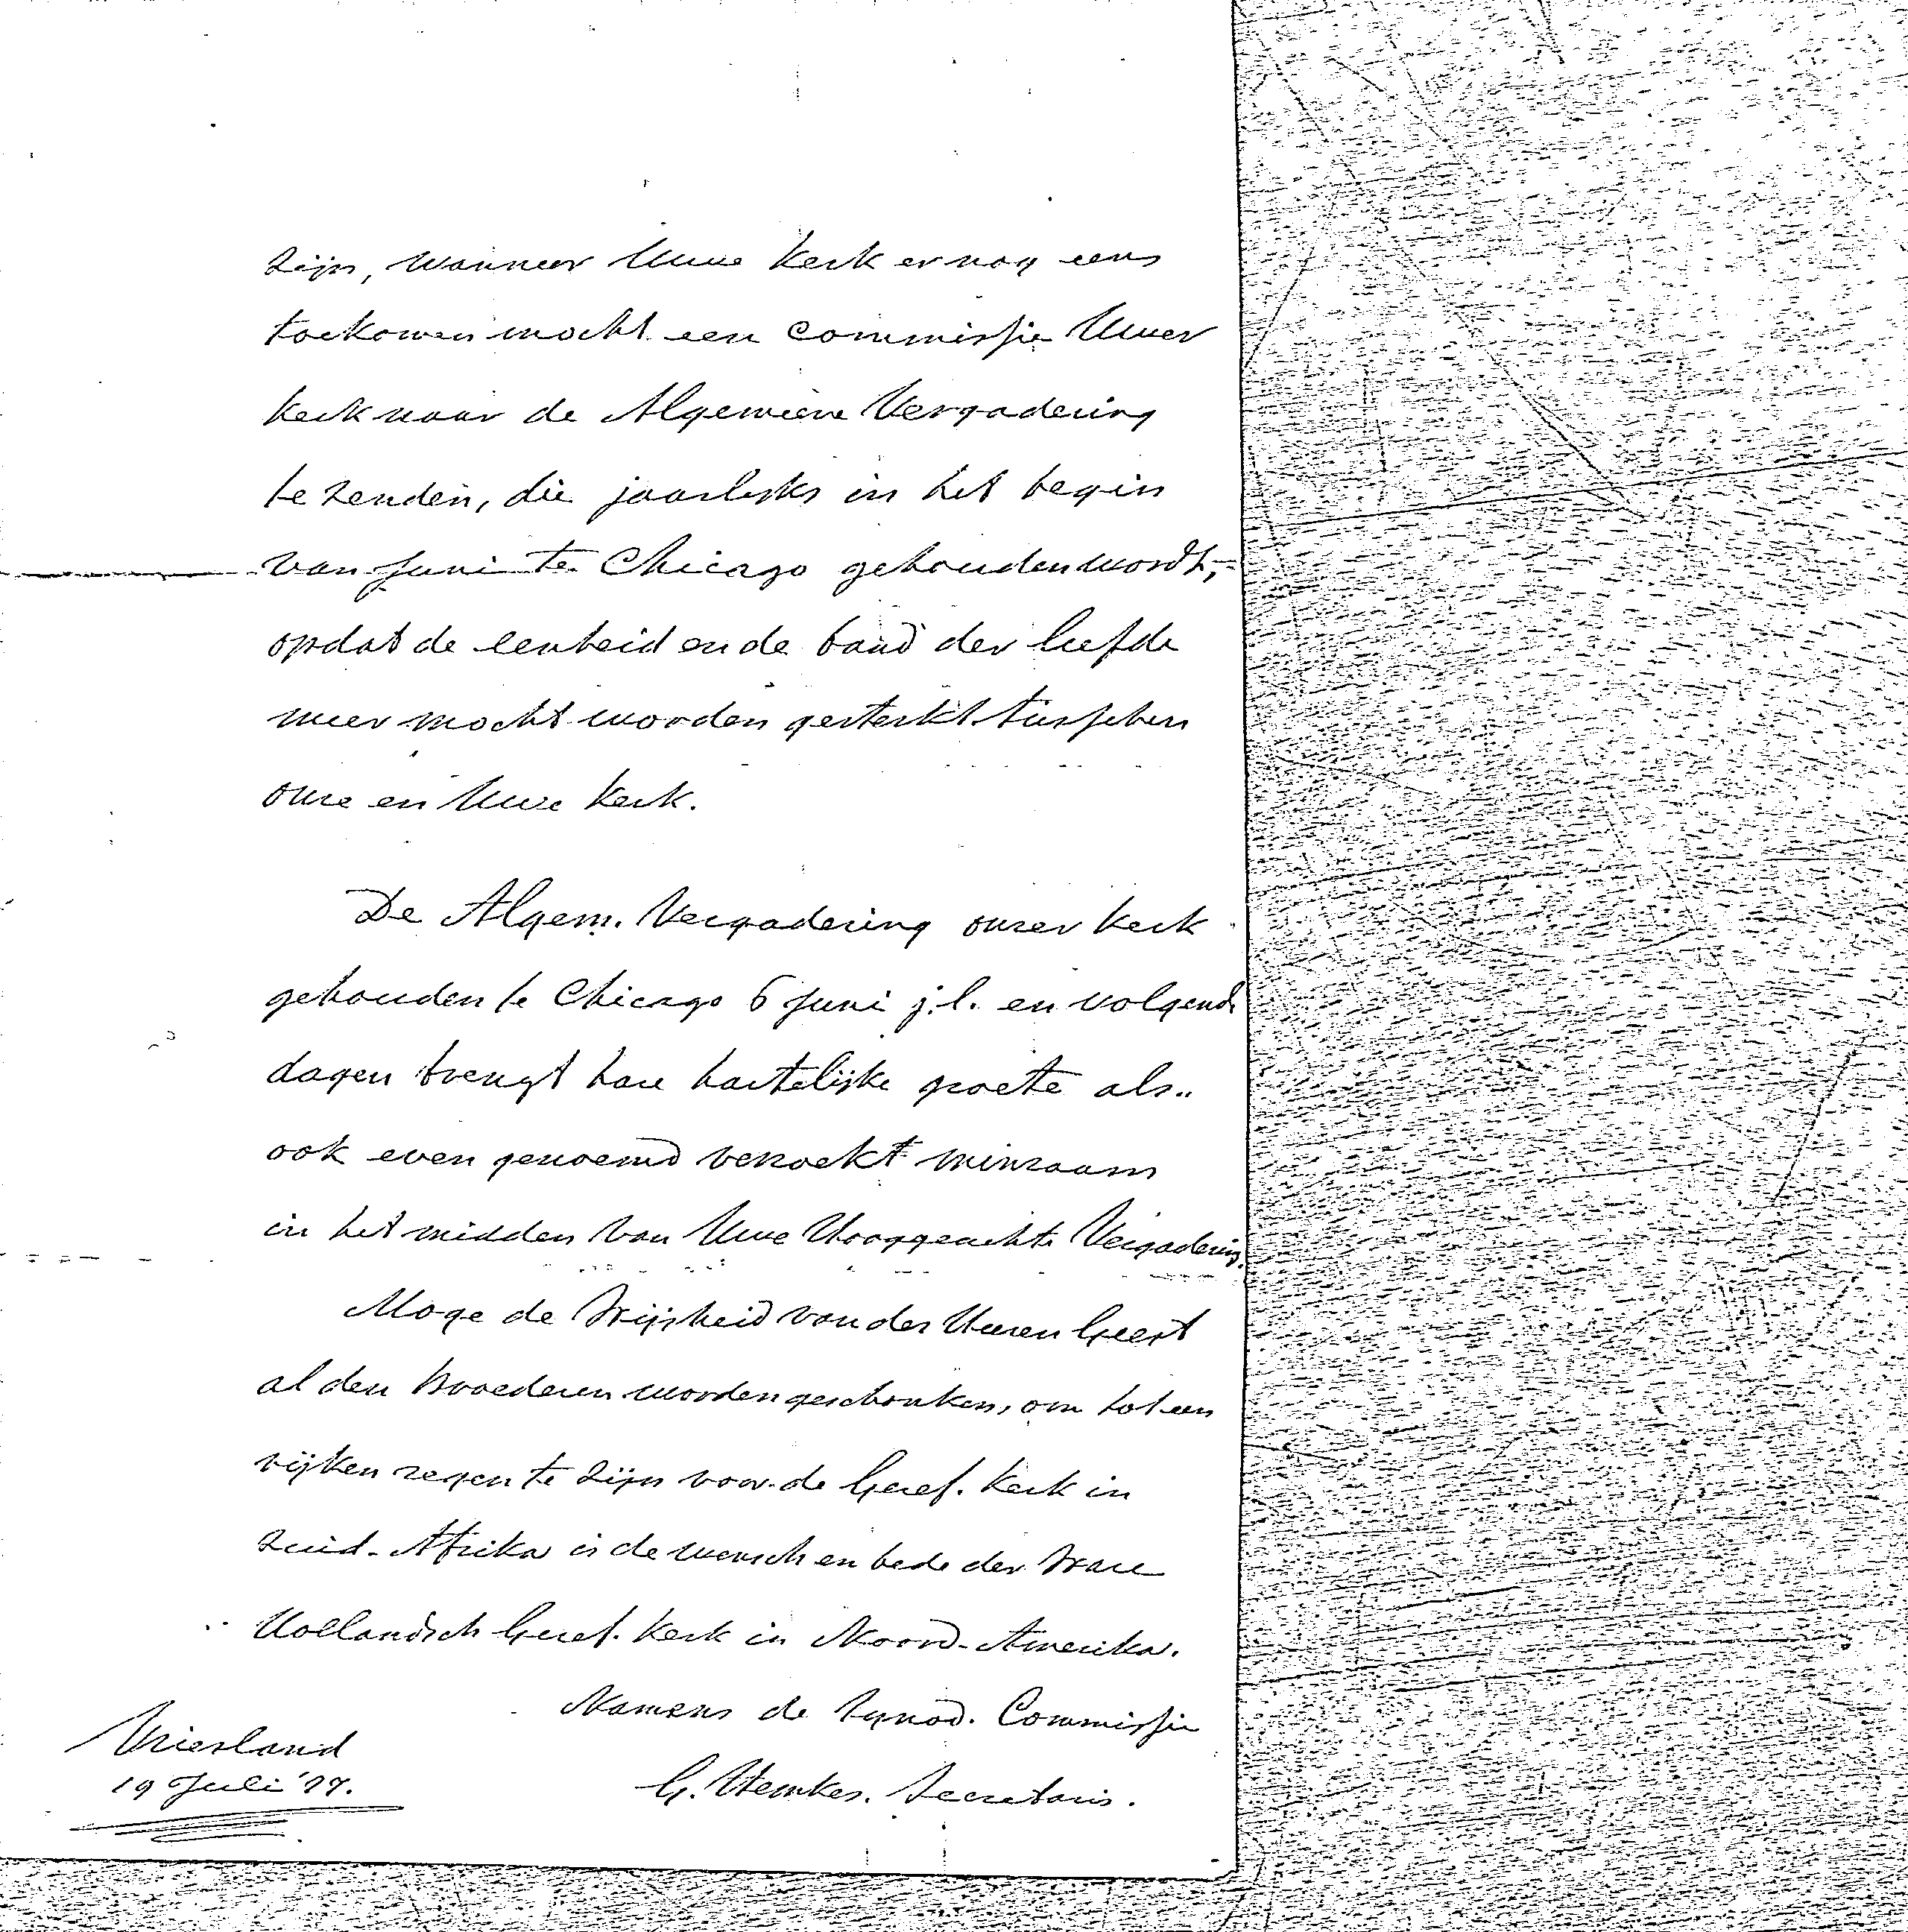 zijn, wanneer Uwe Kerk er nog eens
toekomen mocht een commissie Uwer
Kerk naar de Algemeene Vergadering
te zenden, die jaarlijks in het begin
van Juni te Chicago gehouden wordt,
opdat de eenheid en de band der liefde
meer mocht worden gesterkt tusschen
onze en Uwe Kerk.
De Algem. Vergadering onzer Kerk
gehouden te Chicago 6 Juni j.l. en volgende
dagen brengt hare hartelijke groete als..
ook even genoemd verzoekt minzaam
in het midden van Uwe Hooggeachte Vergadering.
Moge de Wijsheid van des Heeren Geest
al den Broederen worden geschonken, om tot een
rijken zegen te zijn voor de Geref. Kerk in
Zuid-Afrika is de wensch en bede der Ware
Hollandsch Geref. Kerk in Noord-Amerika.
Namens de Synod. Commissie
Vriesland
19 Juli '77.
G. Hemkes. Secretaris.